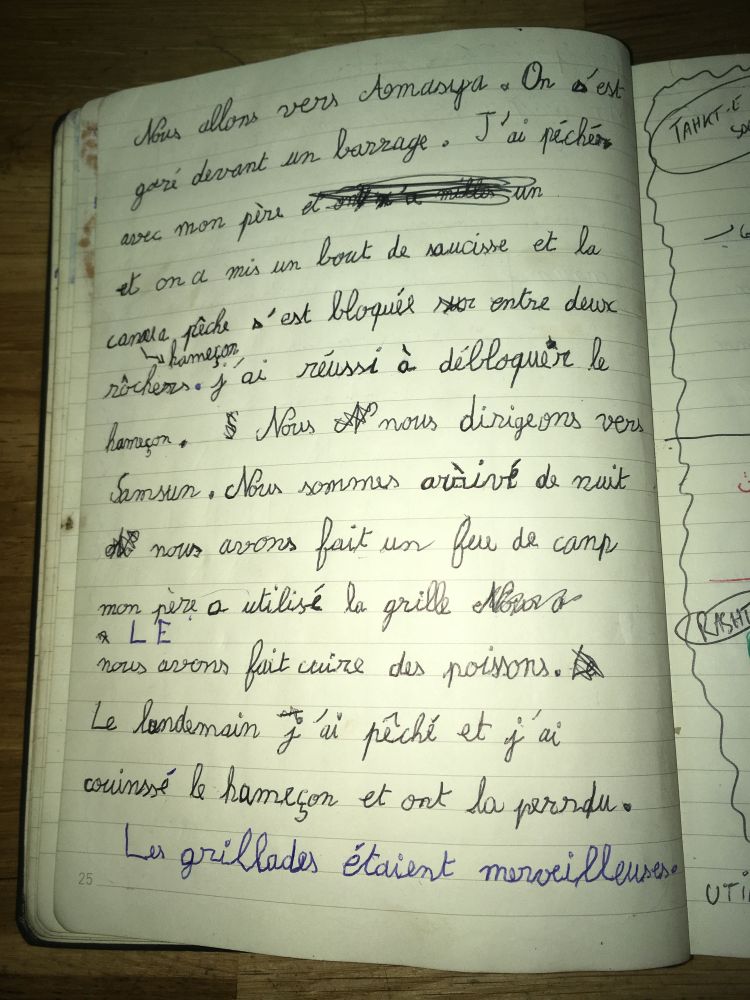 Nous allons vers Amasya. On s'est
garé devant un barrage. J'ai péché
avec mon père et un
et on a mis un bout de saucisse et la
canne à pêche s'est bloquée entre deux
hameçon
rôchers. j'ai réussi à débloquer le
hameçon. Nous nous dirigeons vers
Samsun. Nous sommes arrivé de nuit
nous avons fait un feu de camp
mon père a utilisé la grille
LE
nous avons fait cuire des poissons.
Le landemain j'ai pêché et j'ai
couinssé le hameçon et ont la perrdu.
Les grillades étaient merveilleuses.
25
TAHKT-E
RASHT
UTI